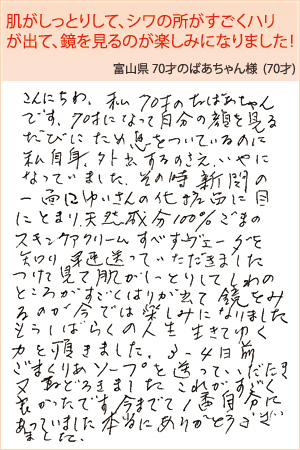 肌がしっとりして、シワの所がすごくハリ
が出て、鏡を見るのが楽しみになりました!
富山県 70才のばあちゃん様 (70才)
こんにちわ。私70才のおばあちゃん
です。70才になって自分の顔を見る
たびにため息をついているのに
私自身、外出するのさえ、いやに
なっていました。その時新聞の
一面にゆいさんの化粧品に目
にとまり、天然成分100%ごまの
スキンケアクリーム すべすヴェーダを
知り 早速送っていただきました
つけて見て肌がしっとりしてしわの
ところがすごくはりが出て 鏡をみ
るのが今では楽しみになりました
もうしばらくの人生 生きてゆく
力を頂きました。3-4日前
ごまくりあソープを送っていただき
又おどろきました これがすごく
良かったです。今までで1番自分に
あっていました 本当にありがとうござい
ました。